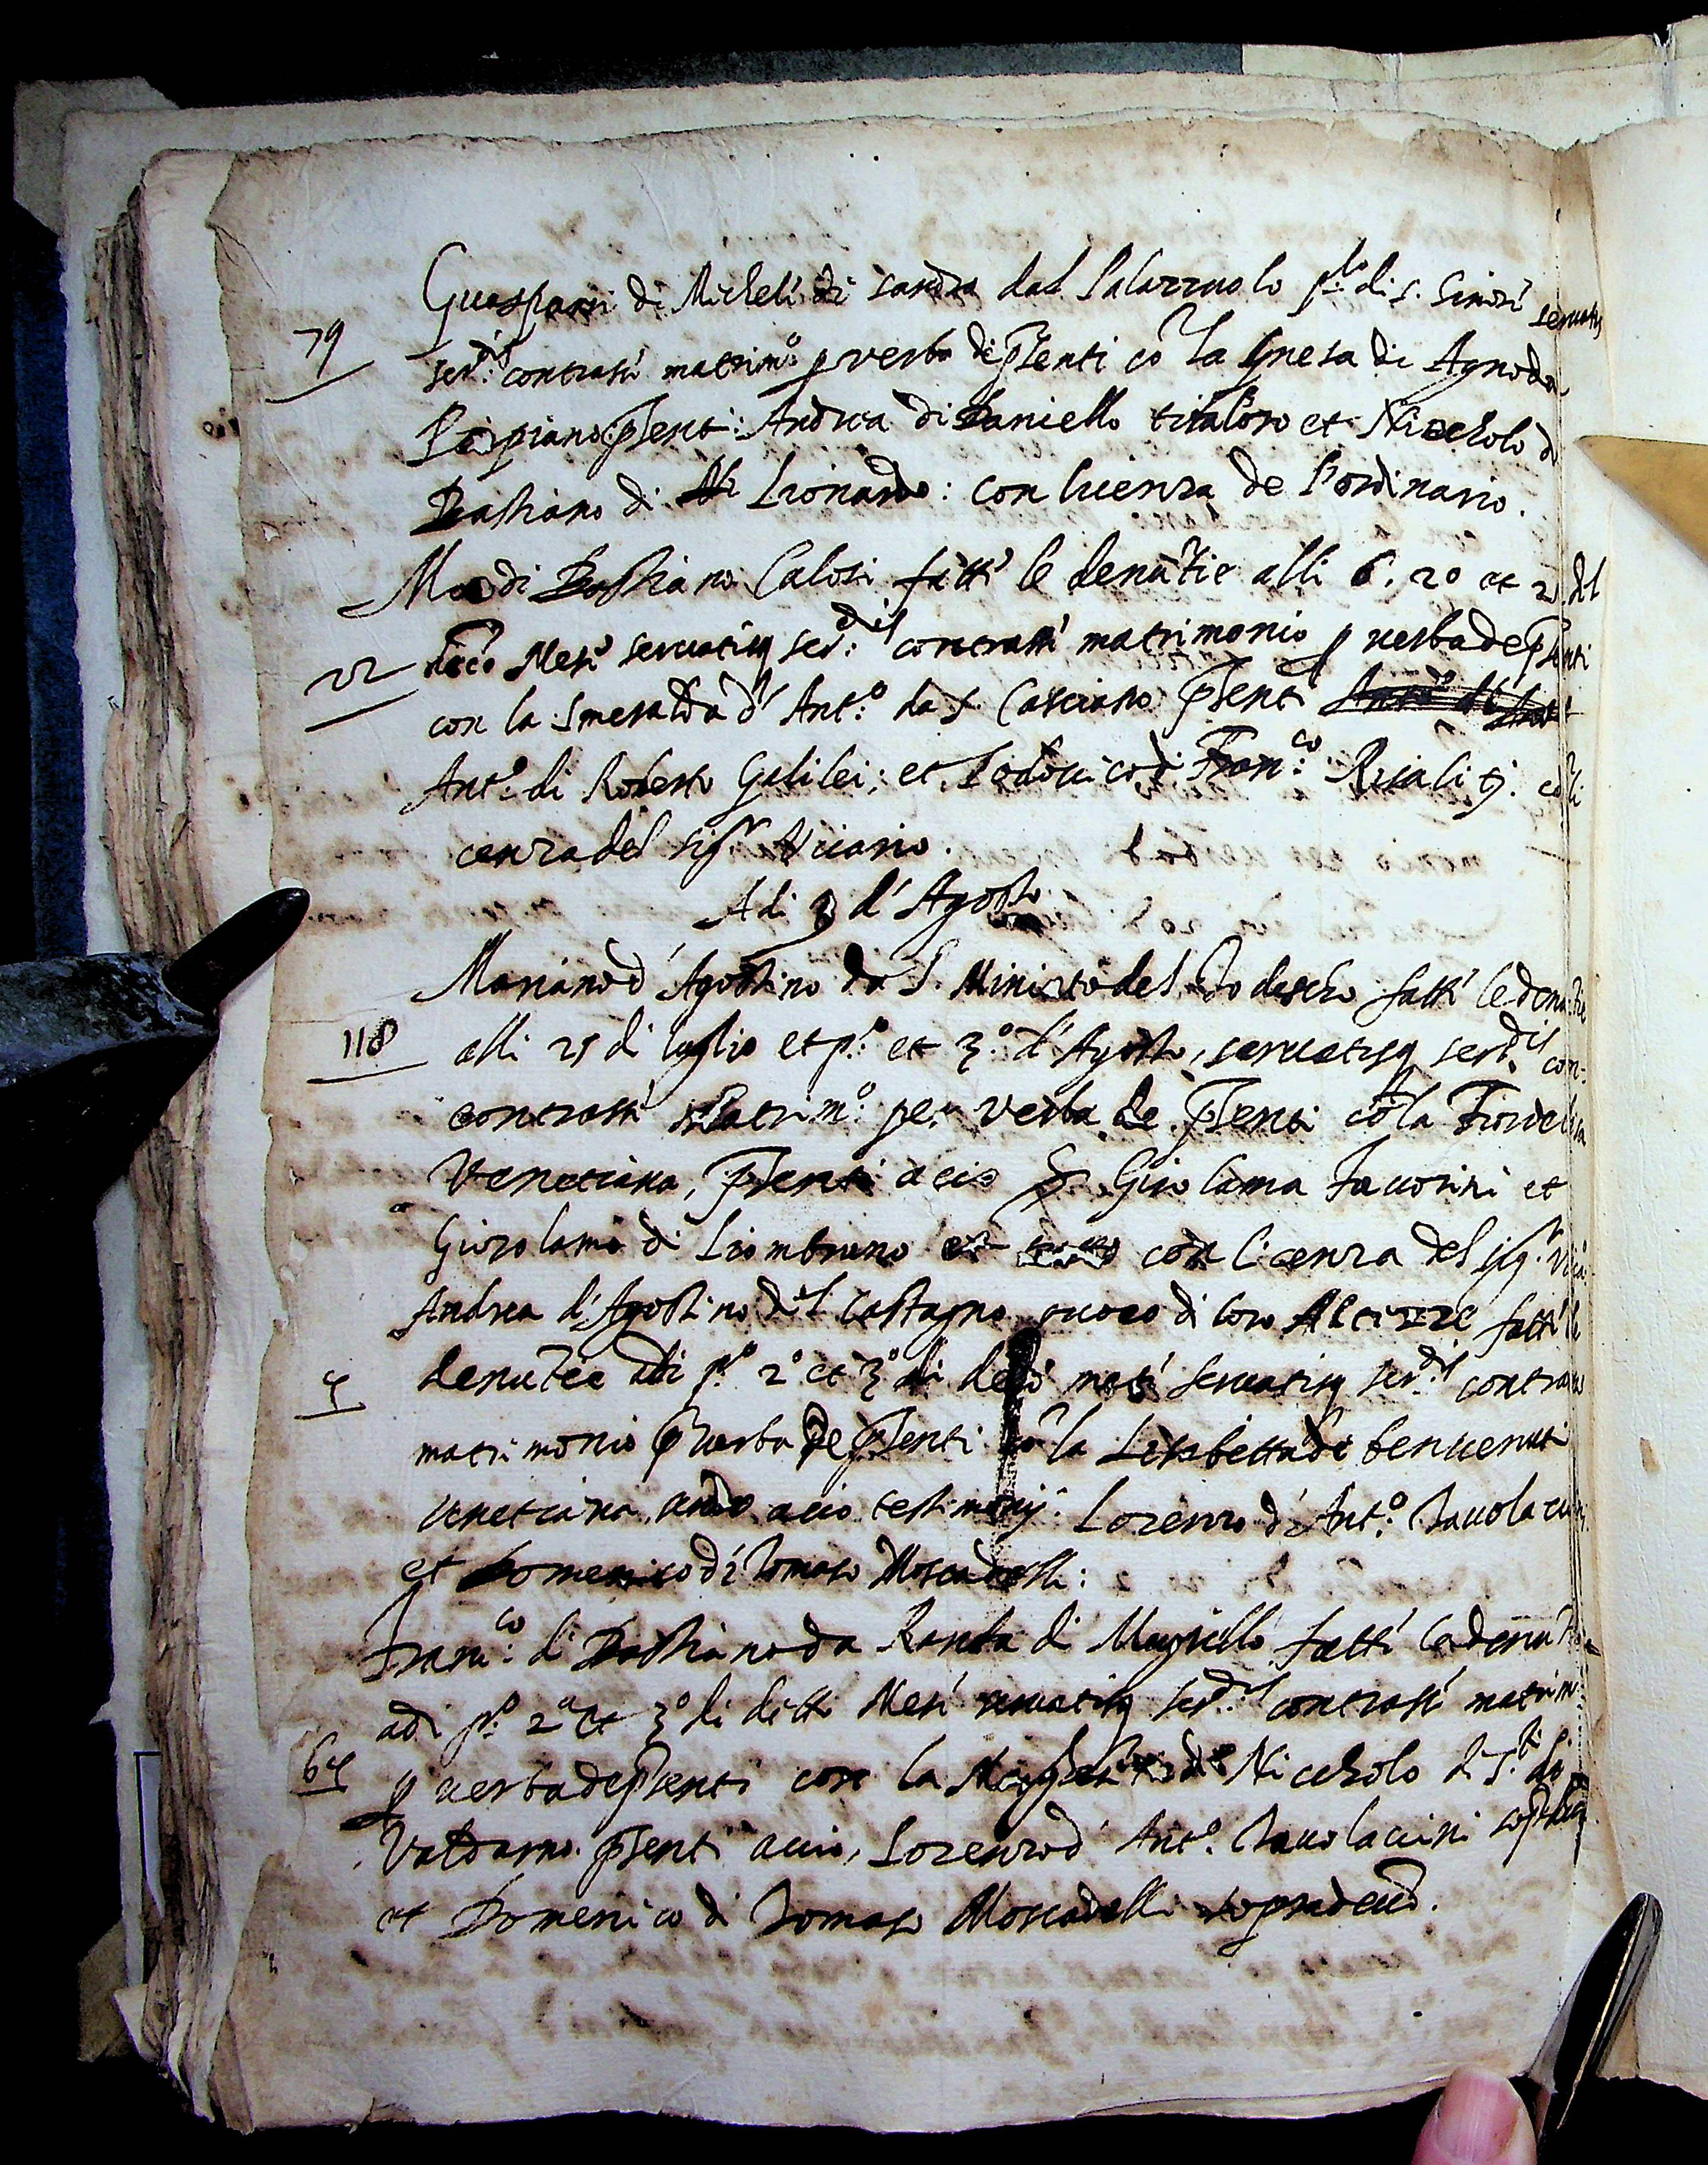 Guasparri di Michelí di sandra dal Palazzuolo p.lo di s. Simoni servatis
79
ser.dis contrasse matrim.o p verba de psenti cō la Gnesa di Agnodo
psenti: Andrea di Daniello et Niccholo d
Bastiano di Lionardo: con licenza de l'ordinario.
Meo di Bastiano Calosi fatti le denūtie alli 6. 20 et 2 del
22
detto Mese servatisq ser.dis contrasse matrimonio p verba de psenti
con la Smeralda d' Ant.o da S. Casciano psenti
Ant.o di Roberto Galilei, et Lodovico di Fran.co li
cenza del sig.r Vicario.
Adi 3 d'Agosto
Mariano d' Agostino da S. Miniato del Todescho fatti le denūtie
118
alli 25 di luglio et p.o et 3.o d' Agosto, servatisq ser.dis con-
contrassi Matrim.o per verba de psenti cō la
Venetiana, psenti a cio Girolama et
Girolamo di con licenza del sig.r
Andrea d'Agostino del Castagno cuoco di loro Altezze fatti le
4
denūtie adi p.o 2.o et 3.o di detto mese servatisq ser.dis contrasse
matrimonio p verba de psenti cō la Lisabetta di benvenuti
venetiana, acio testimonij: Lorenzo d' Ant.o
et Domenico di Tomaso Moscadelli:
Fran.co di Bastiano da Ronta di Mugello fatti le denūtie
adi p.o 2.o et 3.o di detto Mese servatisq ser.dis contrasse matrim.o
64
p verba de psenti con la di Niccholo di
Valdarno. psenti acio, Lorenzo d' Ant.o
et Domenico di Tomaso Moscadelli